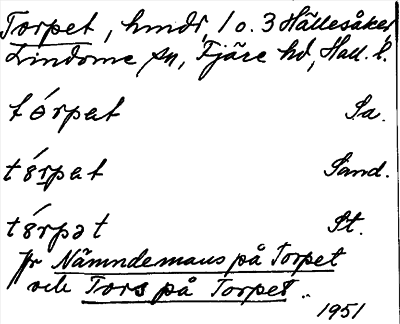 Torpet, hmdr, 1 o. 3 Hällesåker
Lindome sn, Fjäre hd, Hall. l.
tórpat Sa.
tórpat Sand.
tórpət St.
fr Nämndemans på Torpet
och Tors på Torpet..
1951